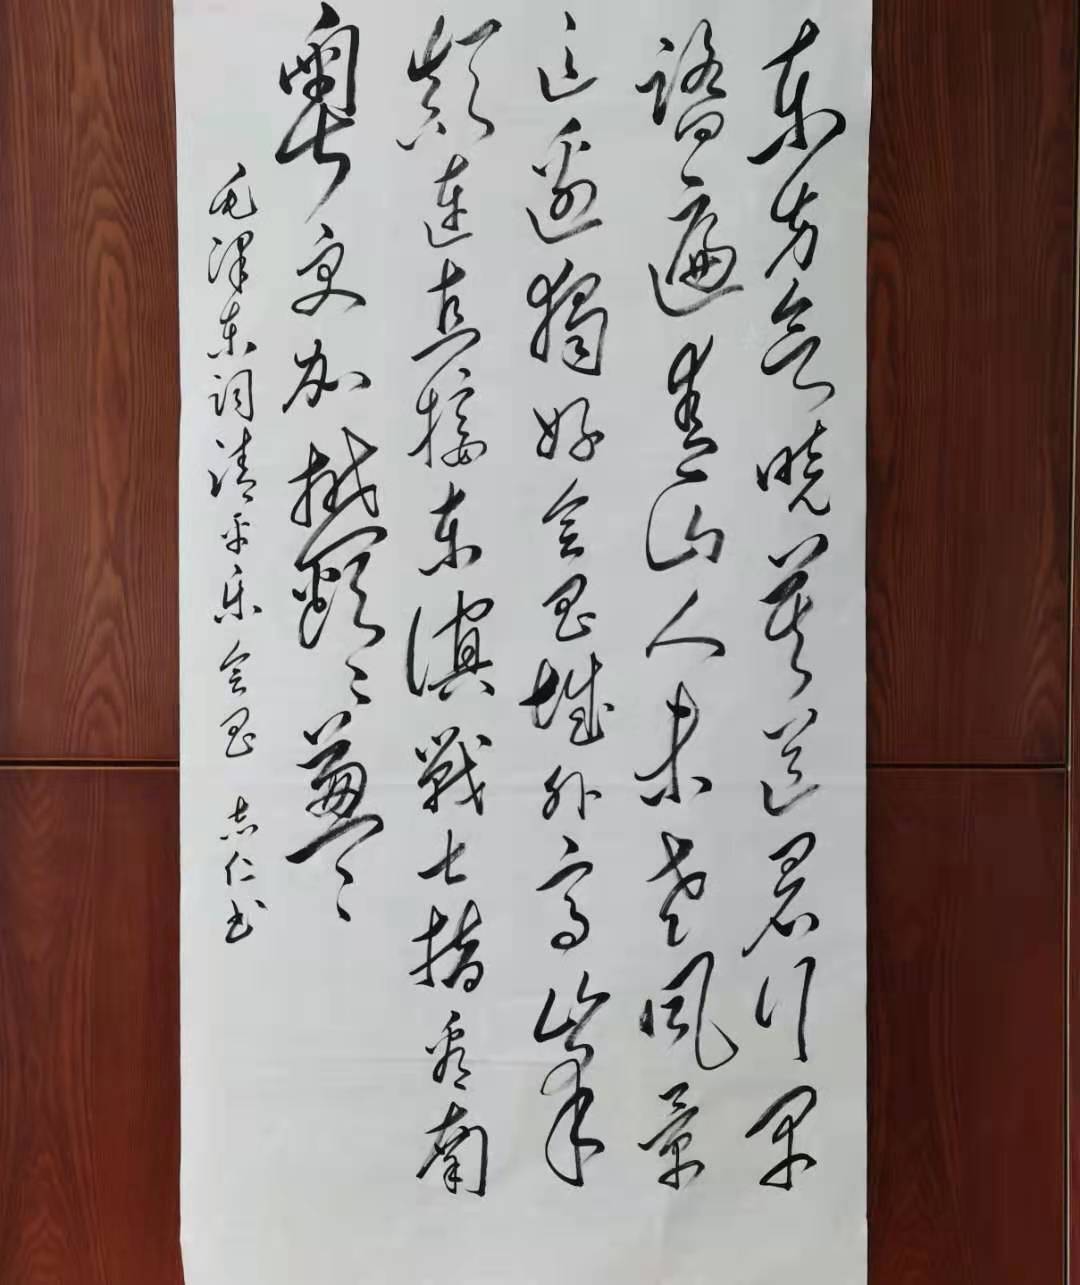 东方欲晓莫道君行早
踏遍青山人未老风景
这邊獨好会昌城外高峰
顛連直接东溟戰士指看南
粤更加鬱々葱々
毛泽东词清平乐会昌 志仁书